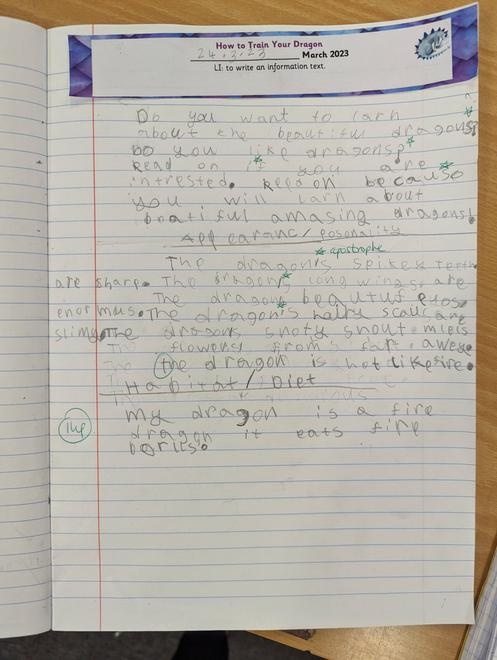 How to Train Your Dragon
24.3.23 March 2023
LI: to write an information text.
Do you want to larn
about the beautiful dragons?
Do you like dragons?
Read on if you are
intrested. Read on because
you will larn about
beatiful amasing dragons!
Appearanc/Posonality
apostrophe
The dragon's spikes teeth
are sharp. The dragons long wings are
The dragons beautuf eyes
enormus. The dragon's hairy scails are
slimy. The dragons snoty snout miels
flowers from a far awey.
the dragon is hot like fire.
Habitat/Diet
My dragon is a fire
dragon it eats fire
1hp